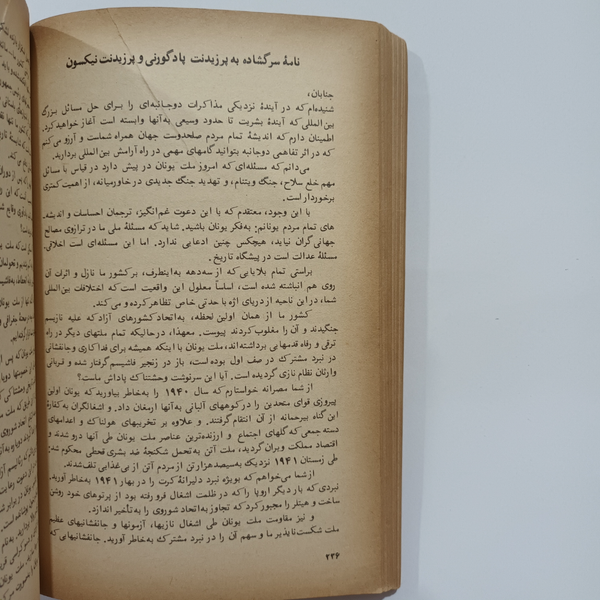 نامهٔ سرگشاده به پرزیدنت پادگورنی و پرزیدنت نیکسون
جنابان،
شنیده‌ام که در آیندهٔ نزدیکی مذاکرات دوجانبه‌ای را برای حل مسائل بزرگ
بین‌المللی که آیندهٔ بشریت تا حدود وسیعی به‌آنها وابسته است آغاز خواهید کرد.
اطمینان دارم که اندیشهٔ تمام مردم صلحدوست جهان همراه شماست و آرزو می‌کنم
که در اثر تفاهمی دوجانبه بتوانید گامهای مهمی در راه آرامش بین‌المللی بردارید.
می‌دانم که مسئله‌ای که امروز ملت یونان در پیش دارد در قیاس با مسائل
مهم خلع سلاح، جنگ ویتنام، و تهدید جنگ جدیدی در خاورمیانه، از اهمیت کمتری
برخوردار است.
با این وجود، معتقدم که با این دعوت غم‌انگیز، ترجمان احساسات و اندیشه‌
های تمام مردم یونانم: به‌فکر یونان باشید. شاید که مسئلهٔ ملی ما در ترازوی مصالح
جهانی گران نیاید، هیچکس چنین ادعایی ندارد. اما این مسئله‌ای است اخلاقی.
مسئلهٔ عدالت است در پیشگاه تاریخ.
براستی تمام بلایایی که از سه‌دهه به‌اینطرف، بر کشور ما نازل و اثرات آن
روی هم انباشته شده است، اساساً معلول این واقعیت است که اختلافات بین‌المللی
شما، در این ناحیه از دریای اژه با حدتی خاص تظاهر کرده و می‌کند.
کشور ما از همان اولین لحظه، به‌اتحاد کشورهای آزاد که علیه نازیسم
جنگیدند و آن را مغلوب کردند پیوست. معهذا، درحالیکه تمام ملتهای دیگر در راه
ترقی و رفاه قدمهایی برداشته‌اند، ملت یونان با اینکه همیشه برای فداکاری و جانفشانی
در نبرد مشترک در صف اول بوده است، باز در زنجیر فاشیسم گرفتار شده و قربانی
وارثان نظام نازی گردیده است. آیا این سرنوشت وحشتناک پاداش ماست؟
از شما مصرانه خواستارم که سال ۱۹۴۰ را به‌خاطر بیاورید که یونان اولین
پیروزی قوای متحدین را در کوههای آلبانی به‌آنها ارمغان داد. و اشغالگران به‌کفارهٔ
این گناه بیرحمانه از آن انتقام گرفتند. و علاوه بر تخریبهای هولناک و اعدامهای
دسته جمعی که گلهای اجتماع و ارزنده‌ترین عناصر ملت یونان طی آنها درو شدند و
اقتصاد مملکت ویران گردید، ملت آتن به‌تحمل شکنجهٔ ضد بشری قحطی محکوم شد:
طی زمستان ۱۹۴۱ نزدیک به‌سیصد هزار تن از مردم آتن از بی‌غذایی تلف‌شدند.
از شما می‌خواهم که بویژه نبرد دلیرانهٔ کرت را در بهار ۱۹۴۱ به‌خاطر آورید.
نبردی که بار دیگر اروپا را که در ظلمت اشغال فرو رفته بود از پرتوهای خود روشن
ساخت و هیتلر را مجبور کرد که تجاوز به‌اتحاد شوروی را به‌تأخیر اندازد.
و نیز مقاومت ملت یونان طی اشغال نازیها، آزمونها و جانفشانیهای عظیم
ملت شکست‌ناپذیر ما و سهم آن را در نبرد مشترک به‌خاطر آورید. جانفشانیهایی که
۲۳۶